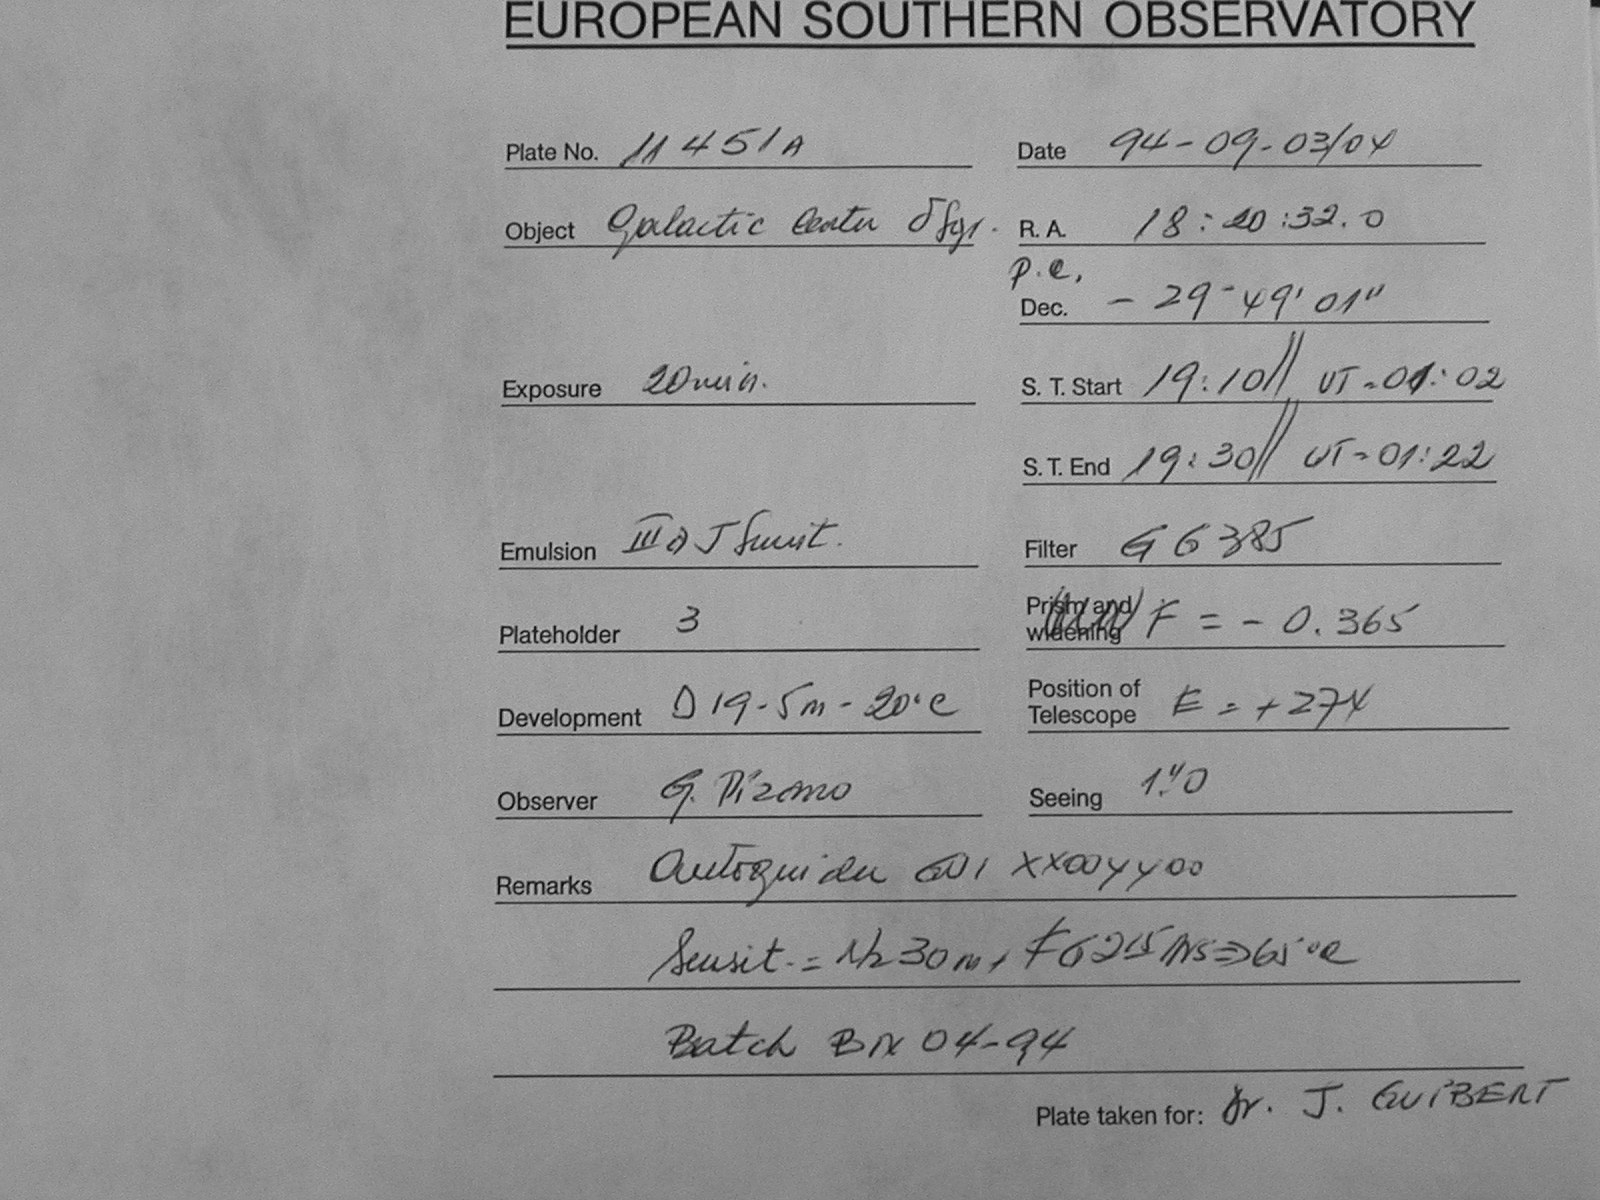 EUROPEAN SOUTHERN OBSERVATORY
Plate No. 11451A
Date 94-09-03/04
Object Galactic Center δ Sgr.
R. A. 18:20:32.0
p.e,
Dec. - 29-49' 01"
Exposure 20min.
S. T. Start 19:10// UT-01:02
S. T. End 19:30// UT-01:22
Emulsion III a J Sensit.
Filter GG385
Plateholder 3
Prism and widening F = - 0.365
Development D19-5m-20°C
Position of Telescope E = +274
Observer G. Pizarro
Seeing 1."0
Remarks Autoguider XX00YY00
Sensit. = N2 30m, 65°C
Batch 04-94
Plate taken for: Dr. J. GUIBERT